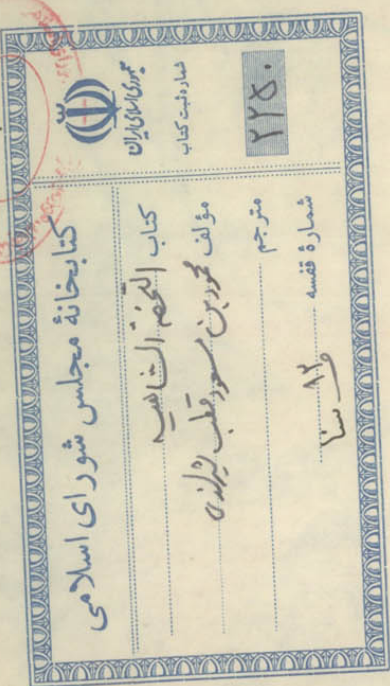 جمهوری اسلامی ایران
شماره ثبت کتاب
۲۲۵۰
کتابخانهٔ مجلس شورای اسلامی
کتاب التحفة الشاهیه
مؤلف محمود بن مسعود قطب شیرازی
مترجم
شمارهٔ قفسه